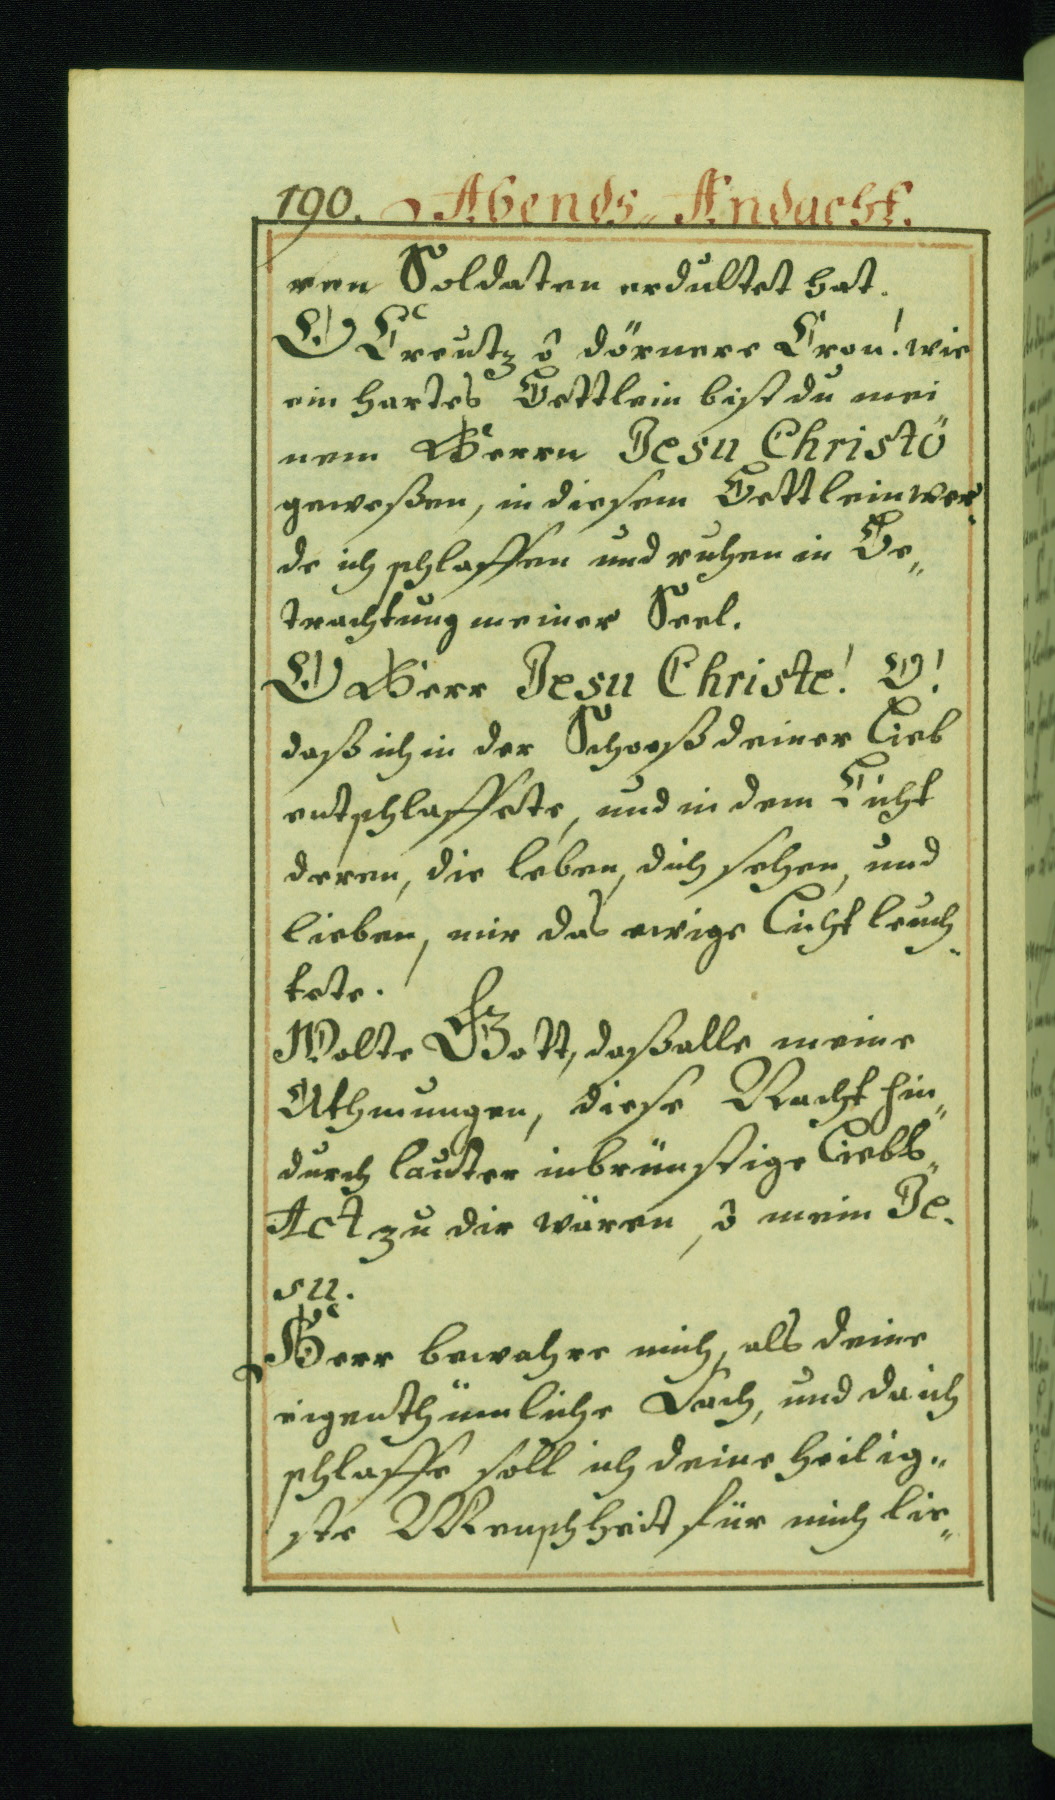 190. Abends„ Andacht.
ren Soldaten erdultet hat.
O Creutz ô dörnere Cron! wie
ein hartes Bettlein bist du mei
nem Herrn Jesu Christo
geweßen, in diesem Bettlein wer„
de ich schlaffen und ruhen in Be„
trachtung meiner Seel.
O Herr Jesu Christe! O!
daß ich in der Schooß deiner Lieb
entschlaffete, und in dem Licht
deren, die leben, dich sehen, und
lieben, mir das ewige Licht leuch„
tete.
Wolte Gott, daß alle meine
Athmungen, diese Nacht hin„
durch lauter inbrünstige Liebs„
Act zu dir wären, ô mein Je„
su.
Herr bewahre mich, als deine
eigenthümliche Sach, und da ich
schlaffe soll ich deine heilig„
ste Menschheit für mich lie„